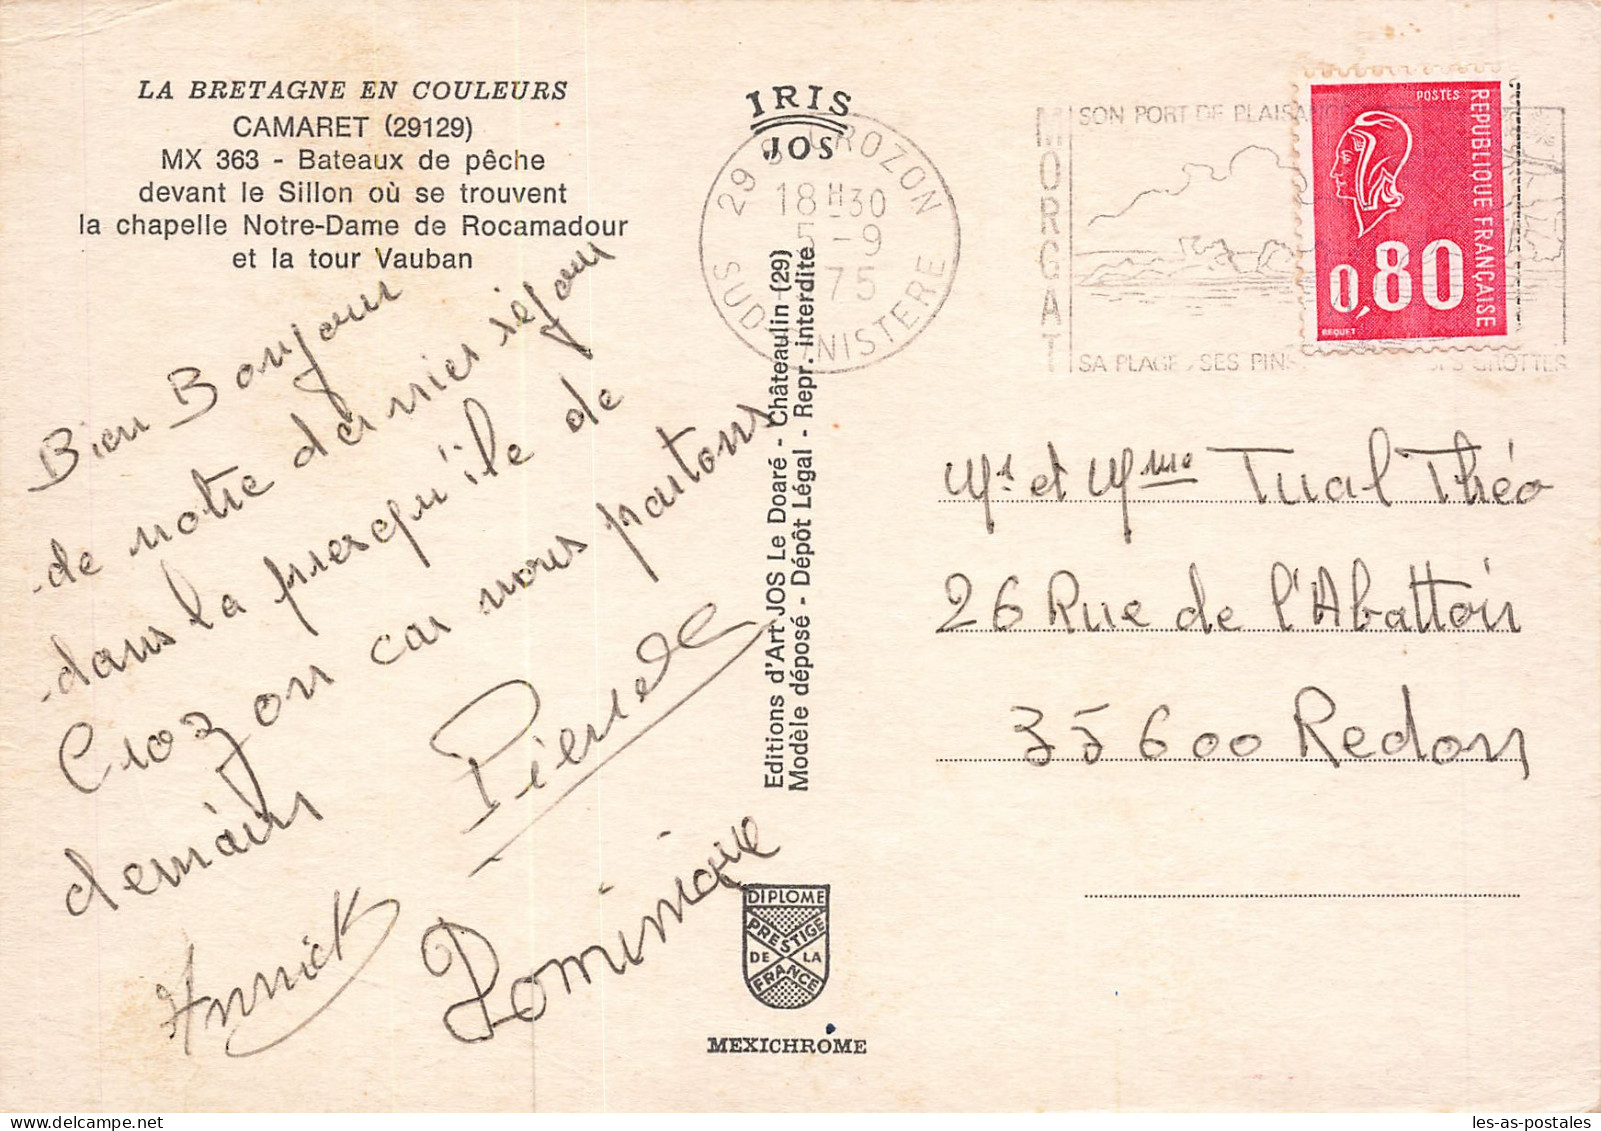 LA BRETAGNE EN COULEURS
CAMARET (29129)
MX 363 - Bateaux de pêche
devant le Sillon où se trouvent
la chapelle Notre-Dame de Rocamadour
et la tour Vauban
Bien Bonjour
de notre dernier séjour
dans la presqu'île de
Crozon car nous partons
demain
Pierre
Annick
Dominique
IRIS
JOS
29 S CROZON
18 H 30
5-9
75
SUD FINISTERE
Editions d'Art JOS Le Doaré - Châteaulin (29)
Modèle déposé - Dépôt Légal - Repr. interdite
DIPLOME
PRESTIGE
DE LA
FRANCE
MEXICHROME
MORGAT
SON PORT DE PLAISANCE
SA PLAGE, SES PINS
GROTTES
POSTES
REPUBLIQUE FRANÇAISE
0,80
BEQUET
Mr et Mme Tual Théo
26 Rue de l'Abattoir
35600 Redon
les-as-postales